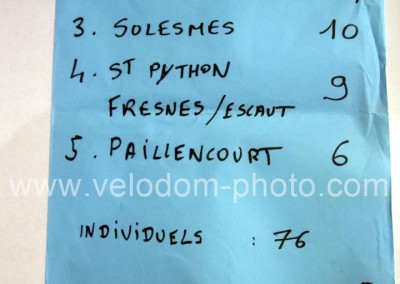 3. SOLESMES 10
4. ST PYTHON
FRESNES/ESCAUT 9
5. PAILLENCOURT 6
www.velodom-photo.com
INDIVIDUELS : 76